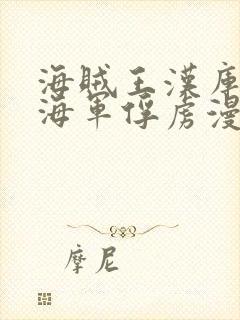 海贼王漢庫
海軍俘虏漫
摩尼